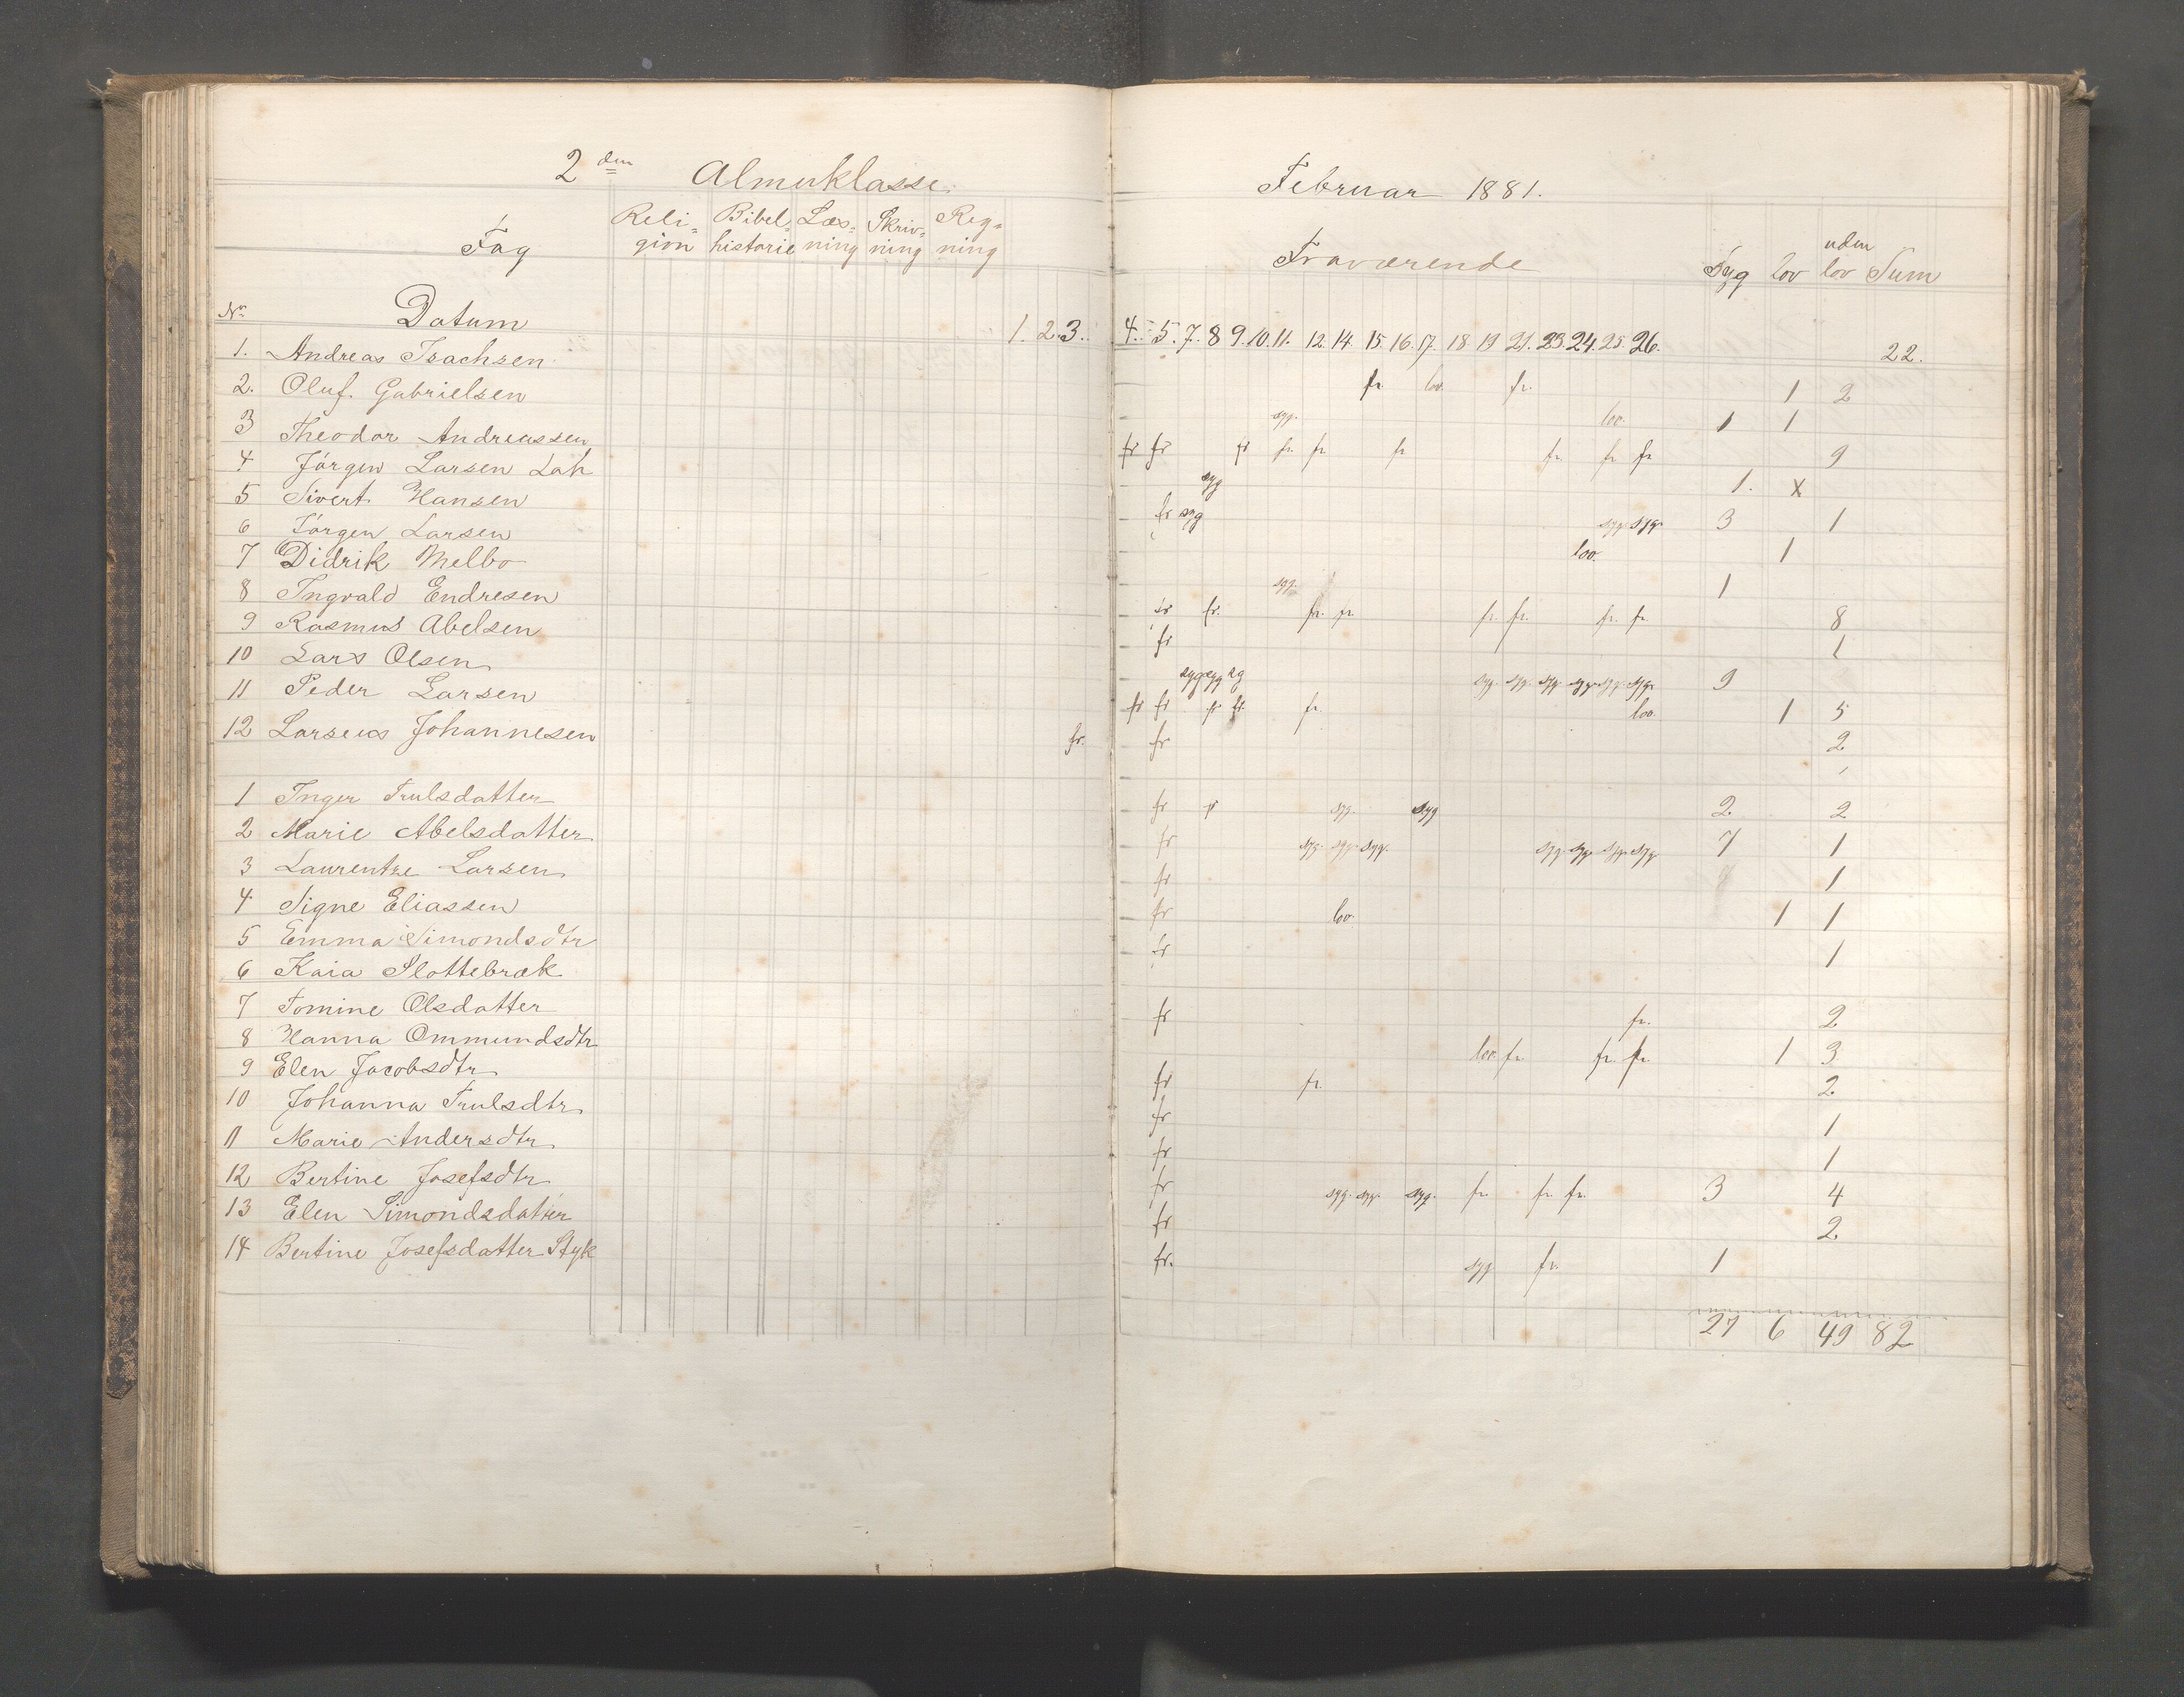 2den Almueklasse
Fag Religion Bibelhistorie Læsning Skrivning Regning
Nr Datum 1. 2. 3.
1. Andreas Isachsen
2. Oluf Gabrielsen
3 Theodor Andreassen
4 Jörgen Larsen Lah
5 Sivert Hansen
6 Jörgen Larsen
7 Didrik Melbo
8 Ingvald Endresen
9 Rasmus Abelsen
10 Lars Olsen
11 Peder Larsen
12 Larseus Johannesen fr.
1 Inger Trulsdatter
2 Marie Abelsdatter
3 Laurentze Larsen
4 Signe Eliassen
5 Emma Simondsdtr
6 Kaia Slottebræk
7 Tomine Olsdatter
8 Hanna Ommundsdtr
9 Elen Jacobsdtr
10 Johanna Trulsdtr
11 Marie Andersdtr
12 Bertine Josefsdtr
13 Elen Simondsdatter
14 Bertine Josefsdatter Styk
Februar 1881.
Fraværende Syg lov uden lov Sum
4. 5. 7. 8 9. 10. 11. 12. 14. 15. 16. 17. 18 19 21. 23. 24. 25. 26.
22.
fr. lov. fr. 1 2
syg. lov. 1 1
fr fr fr fr. fr. fr fr. fr fr 9
syg 1. x
fr syg syg. syg. 3 1
lov. 1
syg. 1
fr fr. fr. fr. fr. fr. fr. fr. 8
fr 1
syg syg sg syg. syg. syg. syg. syg. syg. 9
fr fr fr fr. fr. lov. 1 5
fr 2
fr fr syg. syg 2 2
fr syg. syg. syg. syg. syg. syg. syg 7 1
fr 1
fr lov. 1 1
fr 1
fr fr. 2
lov. fr. fr. fr. 1 3
fr fr. 2
fr 1
fr 1
fr syg. syg. syg. fr. fr. fr. 3 4
fr 2
fr. syg fr. 1
27 6 49 82